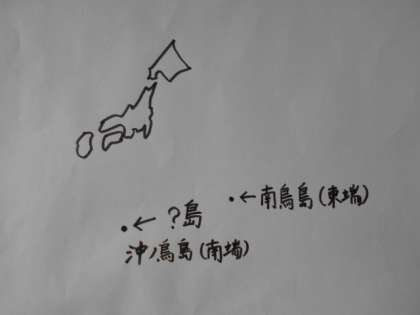 ←南鳥島(東端)
←？島
沖ノ鳥島(南端)